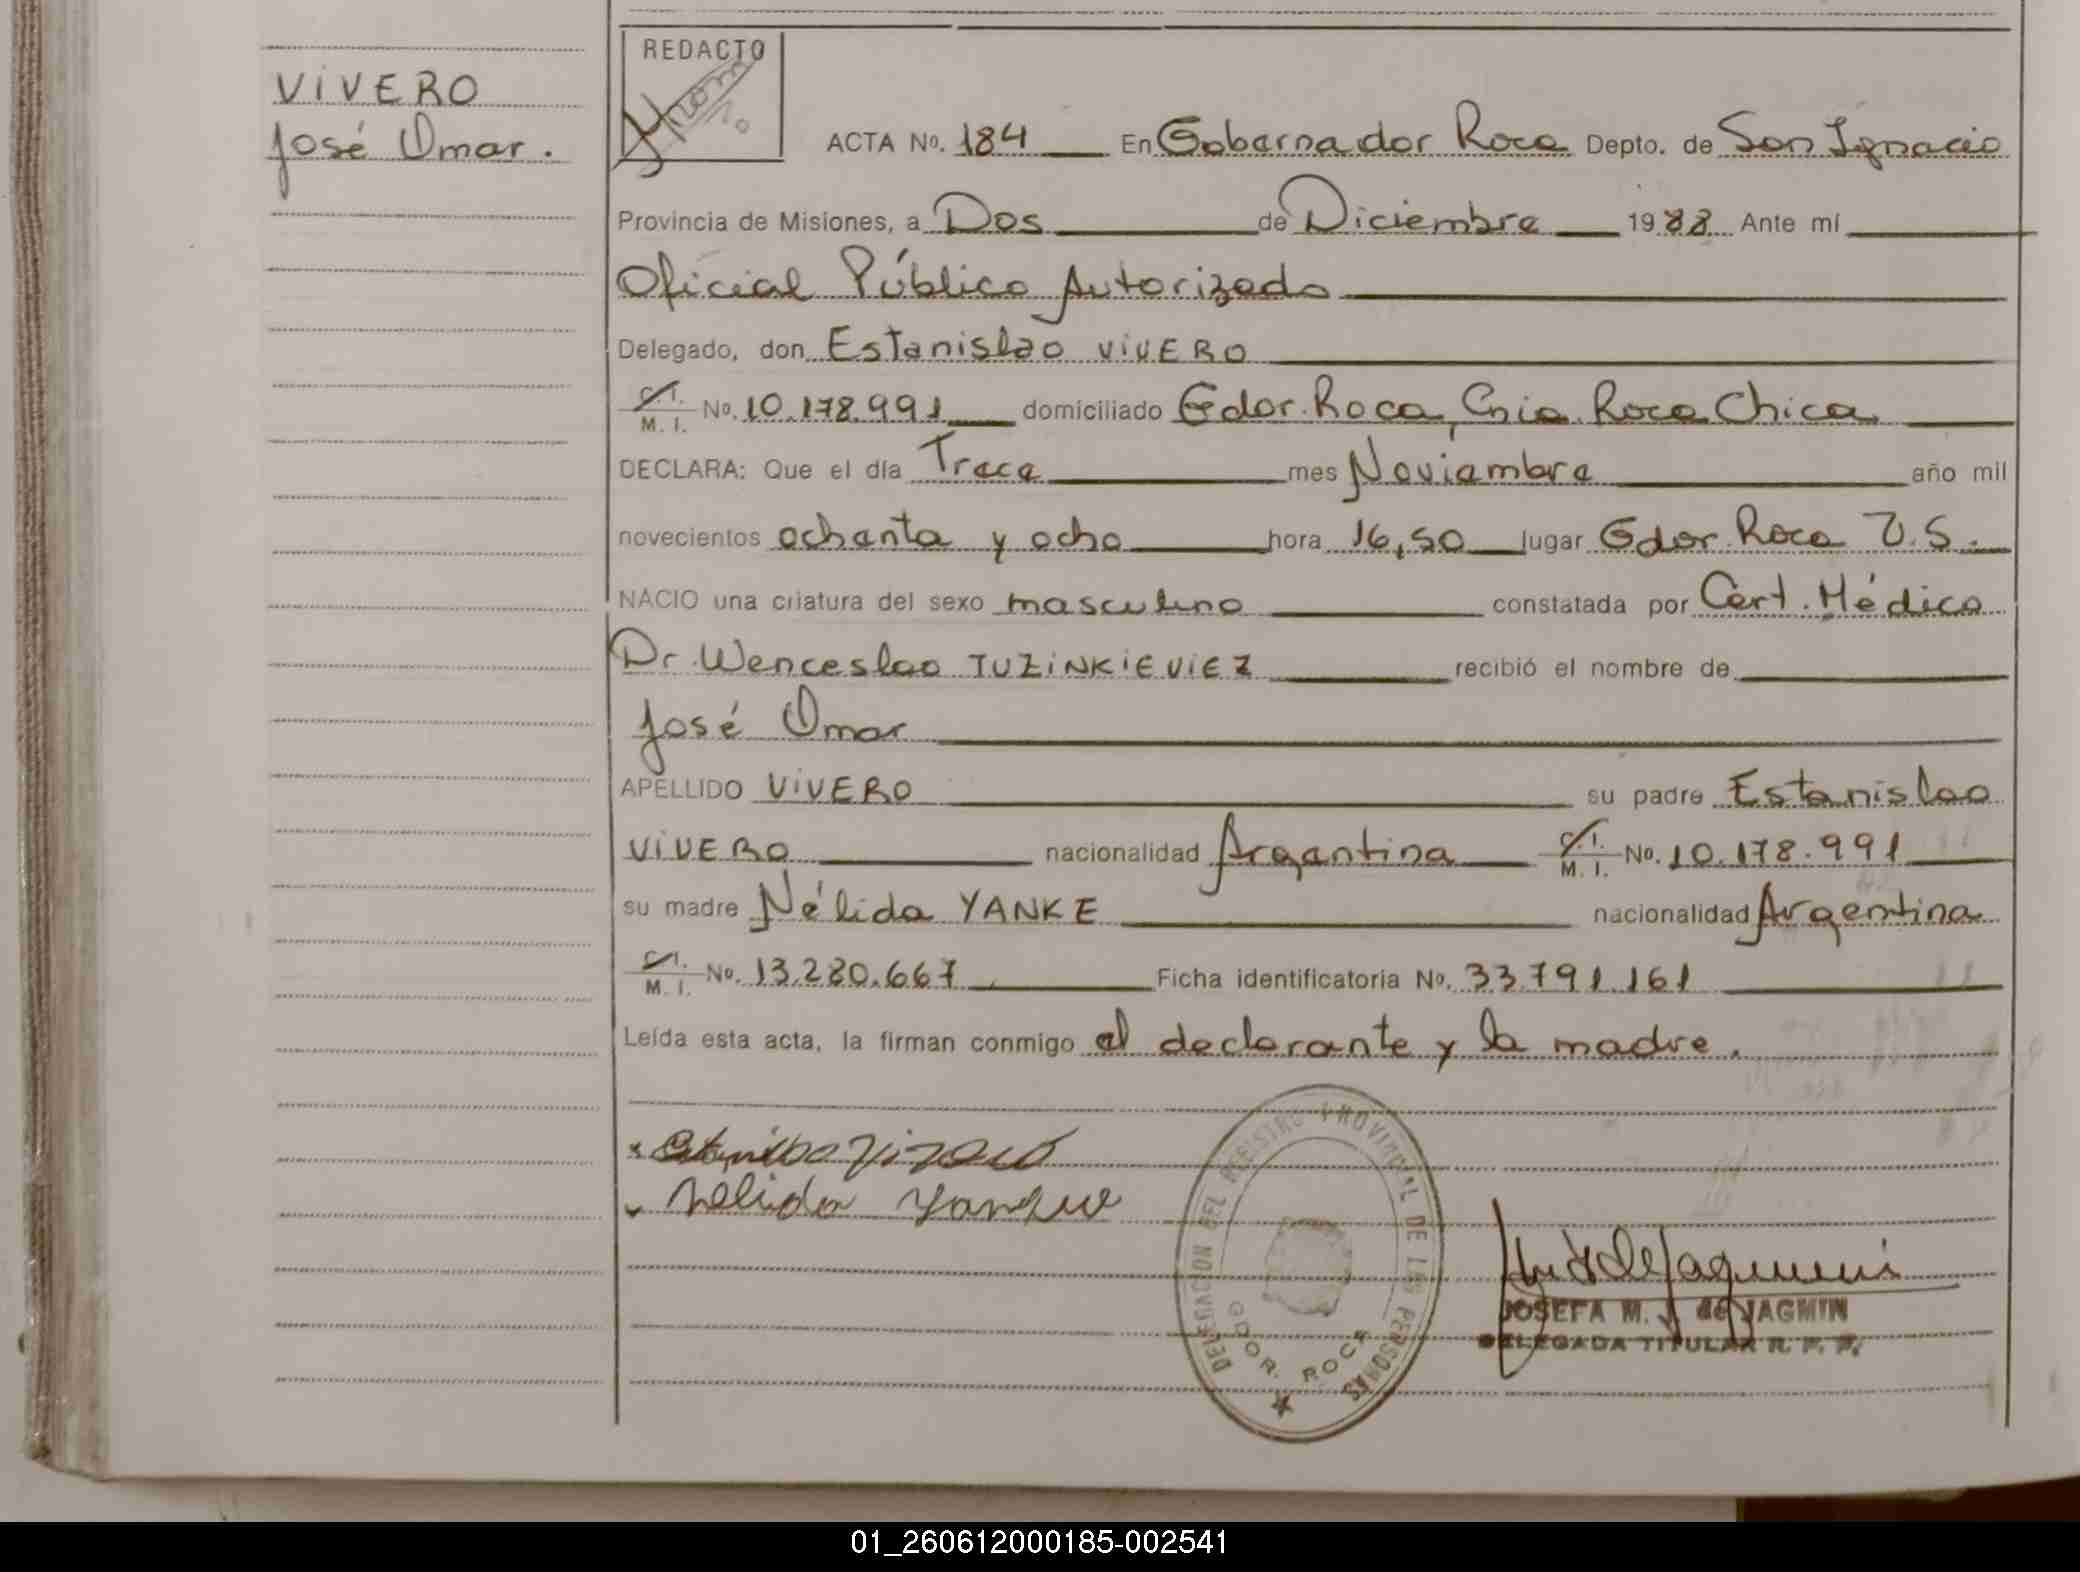 VIVERO
José Omar.
REDACTO
ACTA No. 184 En Gobernador Roca Depto. de San Ignacio
Provincia de Misiones, a Dos de Diciembre 1988 Ante mí
Oficial Público Autorizado
Delegado, don Estanislao VIVERO
C.I. M. I. No. 10.178.991 domiciliado Gdor. Roca, Cnia. Roca Chica
DECLARA: Que el día Trece mes Noviembre año mil
novecientos ochenta y ocho hora 16,50 lugar Gdor. Roca U.S.
NACIO una criatura del sexo masculino constatada por Cert. Médico
Dr. Wenceslao TUZINKIEVIEZ recibió el nombre de
José Omar
APELLIDO VIVERO su padre Estanislao
VIVERO nacionalidad Argentina C.I. M. I. No. 10.178.991
su madre Nélida YANKE nacionalidad Argentina
C.I. M. I. No. 13.280.667 Ficha identificatoria No. 33.791.161
Leída esta acta, la firman conmigo el declarante y la madre.
Nelida Yanque
DELEGACION DEL REGISTRO PROVINCIAL DE LAS PERSONAS
GDOR. ROCA
JOSEFA M. J. de JAGMIN
DELEGADA TITULAR R. P. P.
01_260612000185-002541